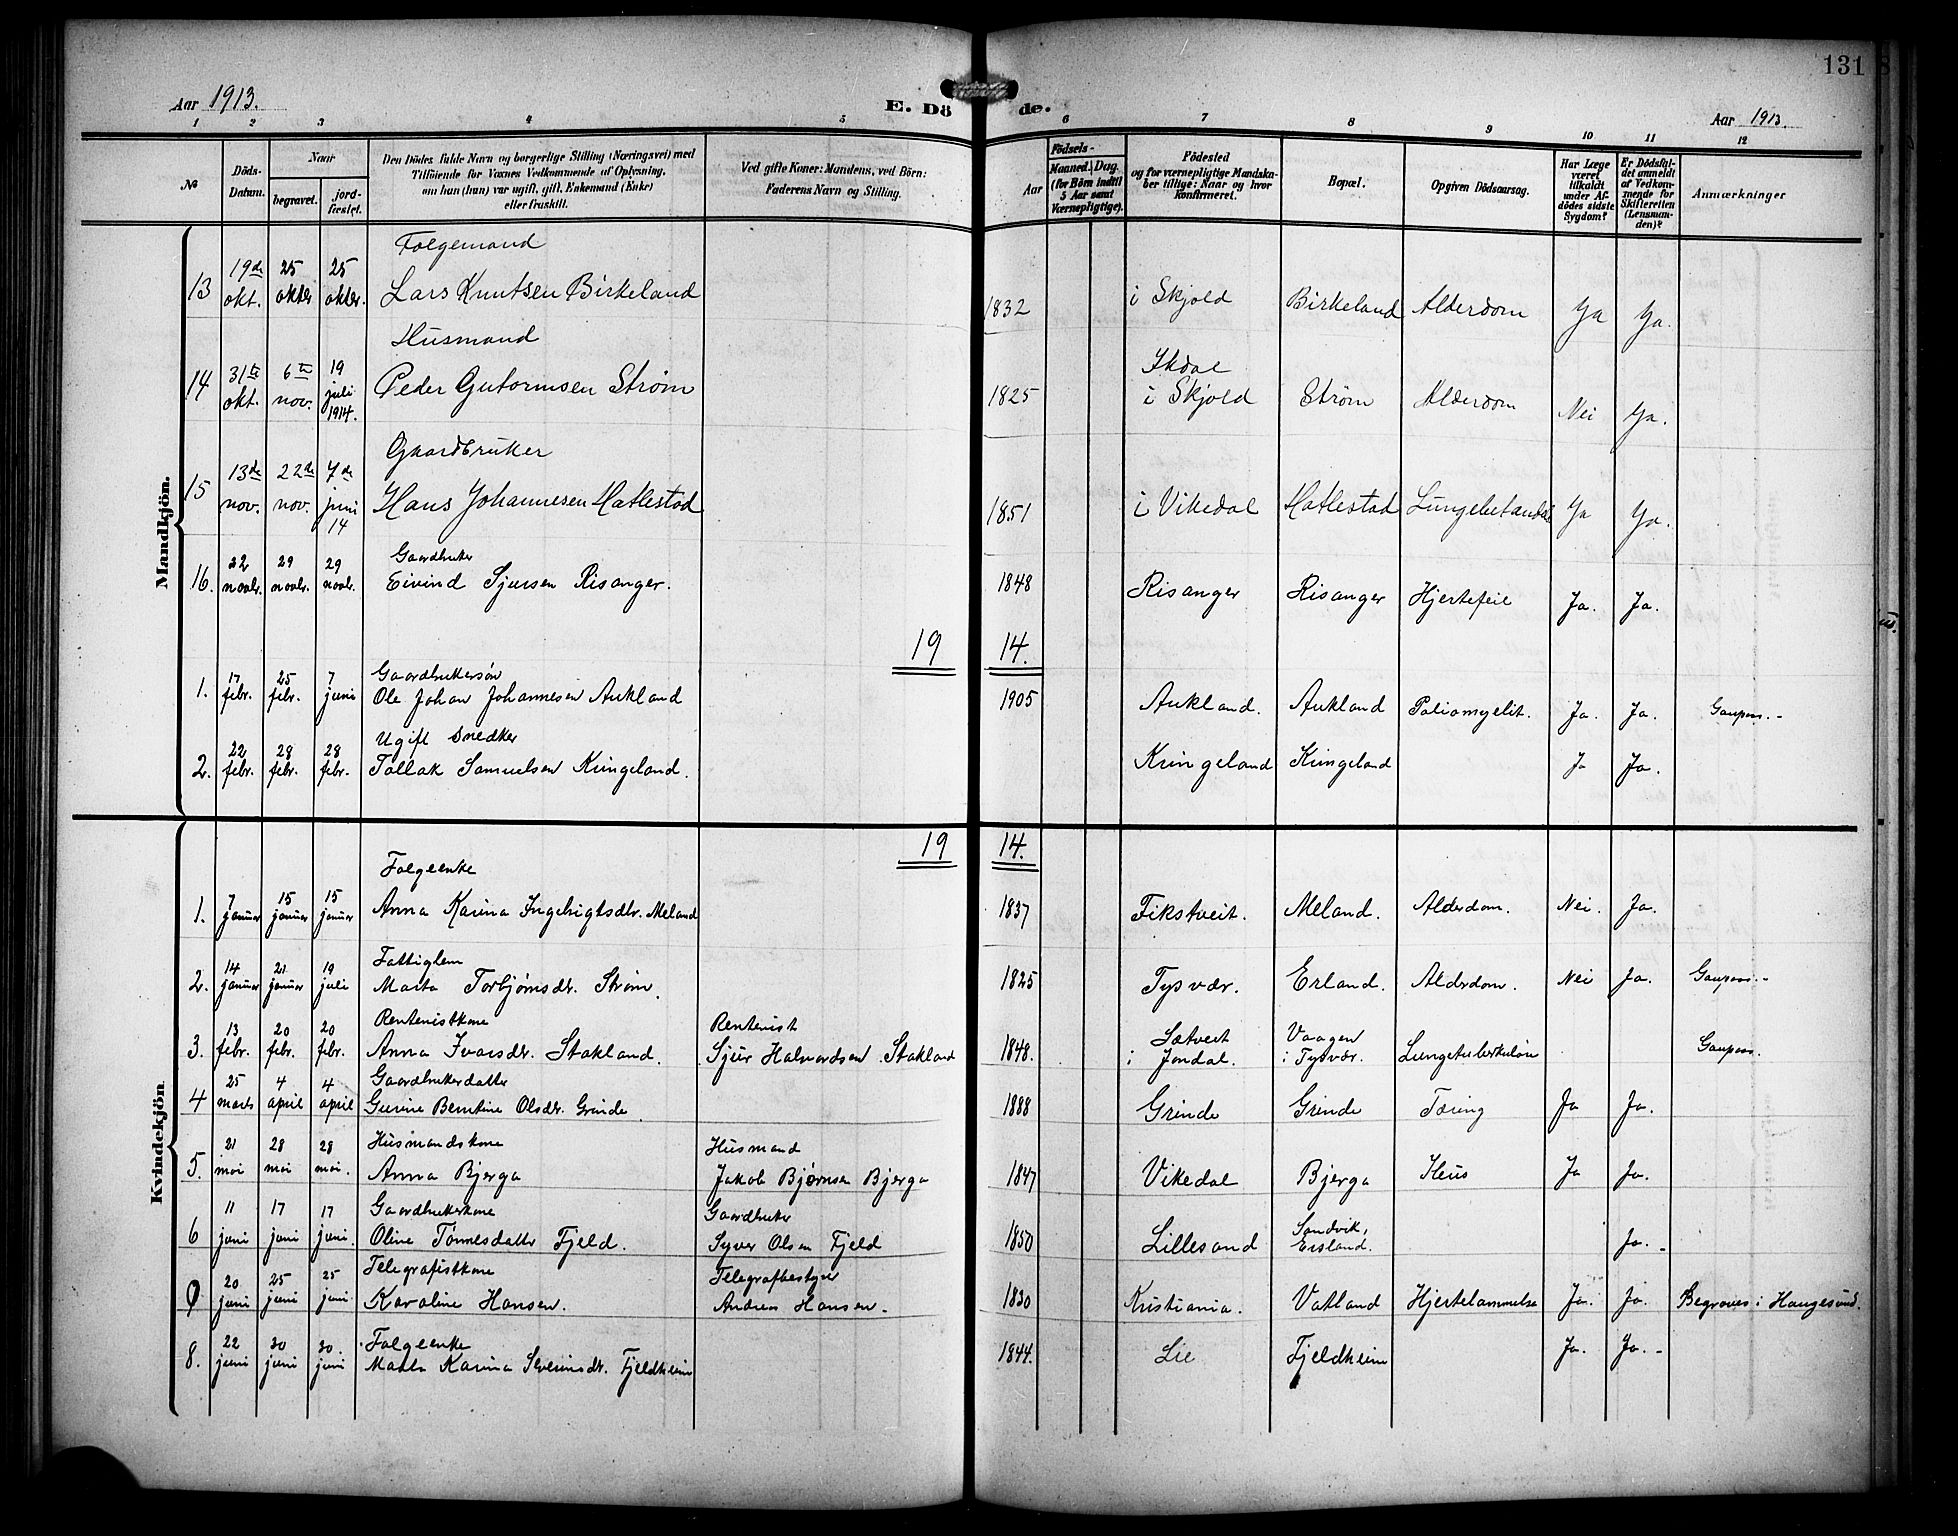 131
Aar 1913.
E. Dö de.
Aar 1913.
1 2 3 4 5 6 7 8 9 10 11 12
№
Döds-
Datum.
Naar
begravet.
jord-
fæstet.
Den Dödes fulde Navn og borgerlige Stilling (Næringsvei) med
Tilföiende for Voxnes Vedkommende af Oplysning,
om han (hun) var ugift, gift, Enkemand (Enke)
eller fraskilt.
Ved gifte Koner: Mandens, ved Börn:
Faderens Navn og Stilling.
Födsels-
Aar
Maaned. Dag.
(for Börn indtil
5 Aar samt
Værnepligtige).
Födested
og for værnepligtige Mandska-
ber tillige: Naar og hvor
Konfirmeret.
Bopæl.
Opgiven Dödsaarsag.
Har Læge
været
tilkaldt
under Af-
dödes sidste
Sygdom?
Er Dödsfal-
det anmeldt
af Vedkom-
mende for
Skifteretten
(Lensman-
den)?
Anmærkninger
Mandkjön.
Folgemand
13 19de okt. 25 oktbr 25 oktbr. Lars Knutsen Birkeland 1832 i Skjold Birkeland Alderdom Ja Ja.
Husmand
14 31te okt. 6te nov. 19 juli 1914. Peder Gutormsen Strøm 1825 i Skjold Strøm Alderdom Nei Ja.
Gaardbruker
15 13de nov. 22de nov. 7de juni 14 Hans Johannesen Hatlestad 1851 i Vikedal Hatlestad Lungebetændelse Ja Ja.
Gaardbruker
16. 22 novbr. 29 novbr. 29 novbr. Eivind Sjursen Risanger. 1848 Risanger Risanger Hjertefeil Ja. Ja.
19 14.
Gaardbrukersøn
1. 17 febr. 25 febr. 7 juni Ole Johan Johannesen Aukland 1905 Aukland. Aukland Poliomyelit. Ja. Ja. Gaupaas.-
Ugift Snedker
2. 22 febr. 28 febr. 28 febr. Tollak Samuelsen Kringeland. Kringeland Kringeland Ja Ja.
Kvindekjön
19 14.
Folgeenke
1. 7 januar 15 januar 15 januar Anna Karina Ingebrigtsdtr. Meland 1837 Fikstveit. Meland. Alderdom. Nei. Ja.
Fattiglem
2. 14 januar 21 januar 19 juli Marta Torbjørnsdtr. Strøm. 1825 Tysvær. Erland. Alderdom. Nei Ja. Gaupaas.-
Rentenistkone Rentenist
3. 13 febr. 20 febr. 20 febr. Anna Ivarsdtr. Stakland. Sjur Halvardsen Stakland 1848. Sætveit i Jondal. Vaagen i Tysvær. Lungetuberkuløse Gaupaas.
Gaardbrukerdatter
4 25 marts 4 april 4 april Gurine Berntine Olsdtr. Grinde 1888 Grinde Grinde Tæring Ja Ja.
Husmandskone Husmand
5. 21 mai 28 mai 28 mai. Anna Bjerga Jakob Bjørnsen Bjerga 1847 Vikedal Bjerga Ileus Ja Ja.
Gaardbrukerkone Gaardbruker
6 11 juni 17 juni 17 juni. Oline Tønnesdatter Fjeld. Syver Olsen Fjeld 1850 Lillesand Sandvik, Ersland. Ja.-
Telegrafistkone Telegrafbestyrer
7 20 juni 25 juni 25 juni. Karoline Hansen. Andreas Hansen. 1830 Kristiania. Vatland Hjertelammelse Ja. Ja. Begraves i Haugesund.
Folgeenke
8. 22 juni 30 juni 30. juni Marta Karina Severinsdtr. Fjeldheim 1844. Lie Fjeldheim Ja. Ja.-